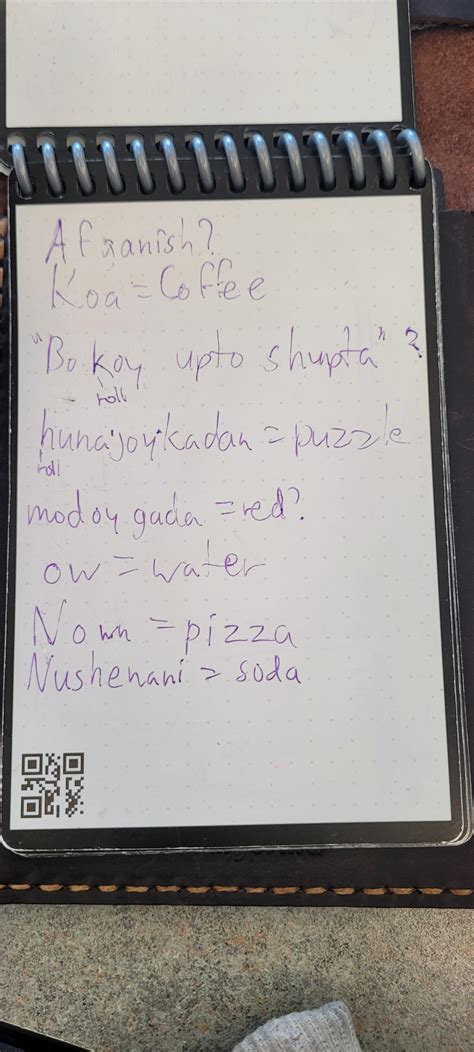 Afganish?
Koa = Coffee
"Bo koy upto shunpta" ?
roll
hunajoykadan = puzzle
roll
modoy gada = red?
ow = water
Nown = pizza
Nushenani = soda